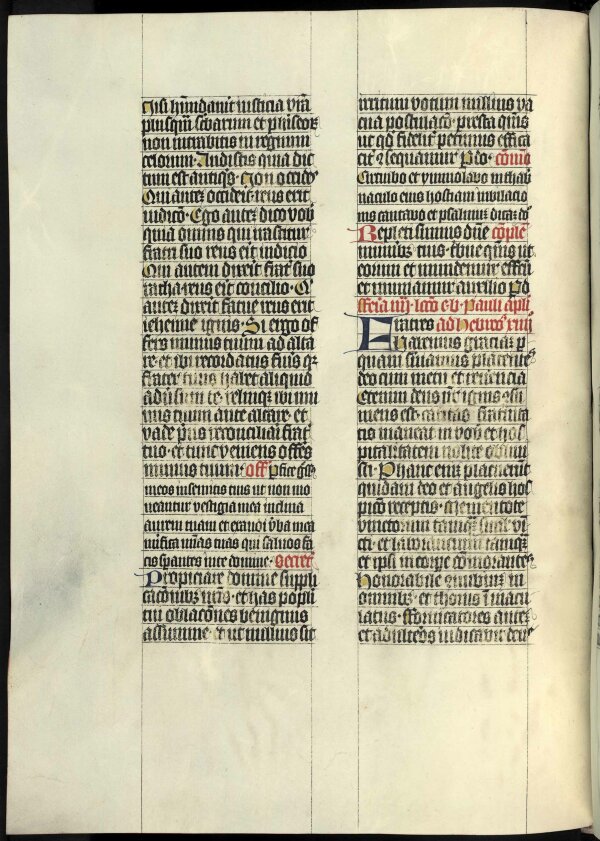 Nisi habundauit iusticia vr̄a
plusqm̄ scribarum et phariseoꝝ
non intrabitis in regnum
celorum · Audistis quia dic
tum est antiqͥs · Non occides
Qui autē occiderit reus erit
iudicio · Ego autē dico vob̄
quia omnis qui irascitur
fratri suo reus erit iudicio
Qui autem dixerit fratri suo
racha reus erit concilio · Qͥ
autē dixerit fatue reus erit
iehenne ignis · Si ergo of
fers munus tuum ad alta
re · et ibi recordatus fūis qꝛ
frater tuus habet aliquid
adūsum te · relinque ibi mu
nus tuum ante altare · et
vade pͥus reconciliari frat̄
tuo · et tunc veniens offes
munus tuum · Off̄ Pfice gͣss̄
meos in semitis tuis ut non mo
ueantur vestigia mea inclina
aurem tuam et exaudi v̄ba mea
mīfica mīas tuas qui saluos fa
cis sperantes in te domine · Secret̄
Propiciare domine suppli
cacōnibꝫ nr̄is · et has populi
tui oblacōnes benignus
assumme · et ut nullius sit
irritum votum nullius va
cua postulacō · presta qͥs
ut qd̄ fideliter petimus effica
citer ↄsequamur P do · cōmō
Circuibo et ymmolabo in thab̄
naculo eius hostiam iubilacio
nis cantabo et psalmum dicam dō
Repleti sumus dn̄e cōplen̄
muneribꝫ tuis · tribue qͥs ut
eorum et mundemur effectu
et muniamur auxilio P d
fferia iiij lcō e b Pauli apli
Fratres ad hebreos xiij
Habemus graciam p
quam seruiamus placentes
deo cum metu et reuerencia
Etenim deus nr̄ ignis ↄsu
mens est · caritas fraternita
tis maneat in vob̄ et hos
pitalitatem nolite obliui
sci · P hanc eniꝫ placuer̄ūt
quidam deo et angelis hos
picio receptis · Mementote
vinctorum tamqͣ simul vīc
ti · et laborantium tamqͣ
et ipsi in corpe cōmorantes
Honorabile conubium in
omnibꝫ · et thorus īmacu
latus · fornicatores autē
et adulteros iudicabit deus